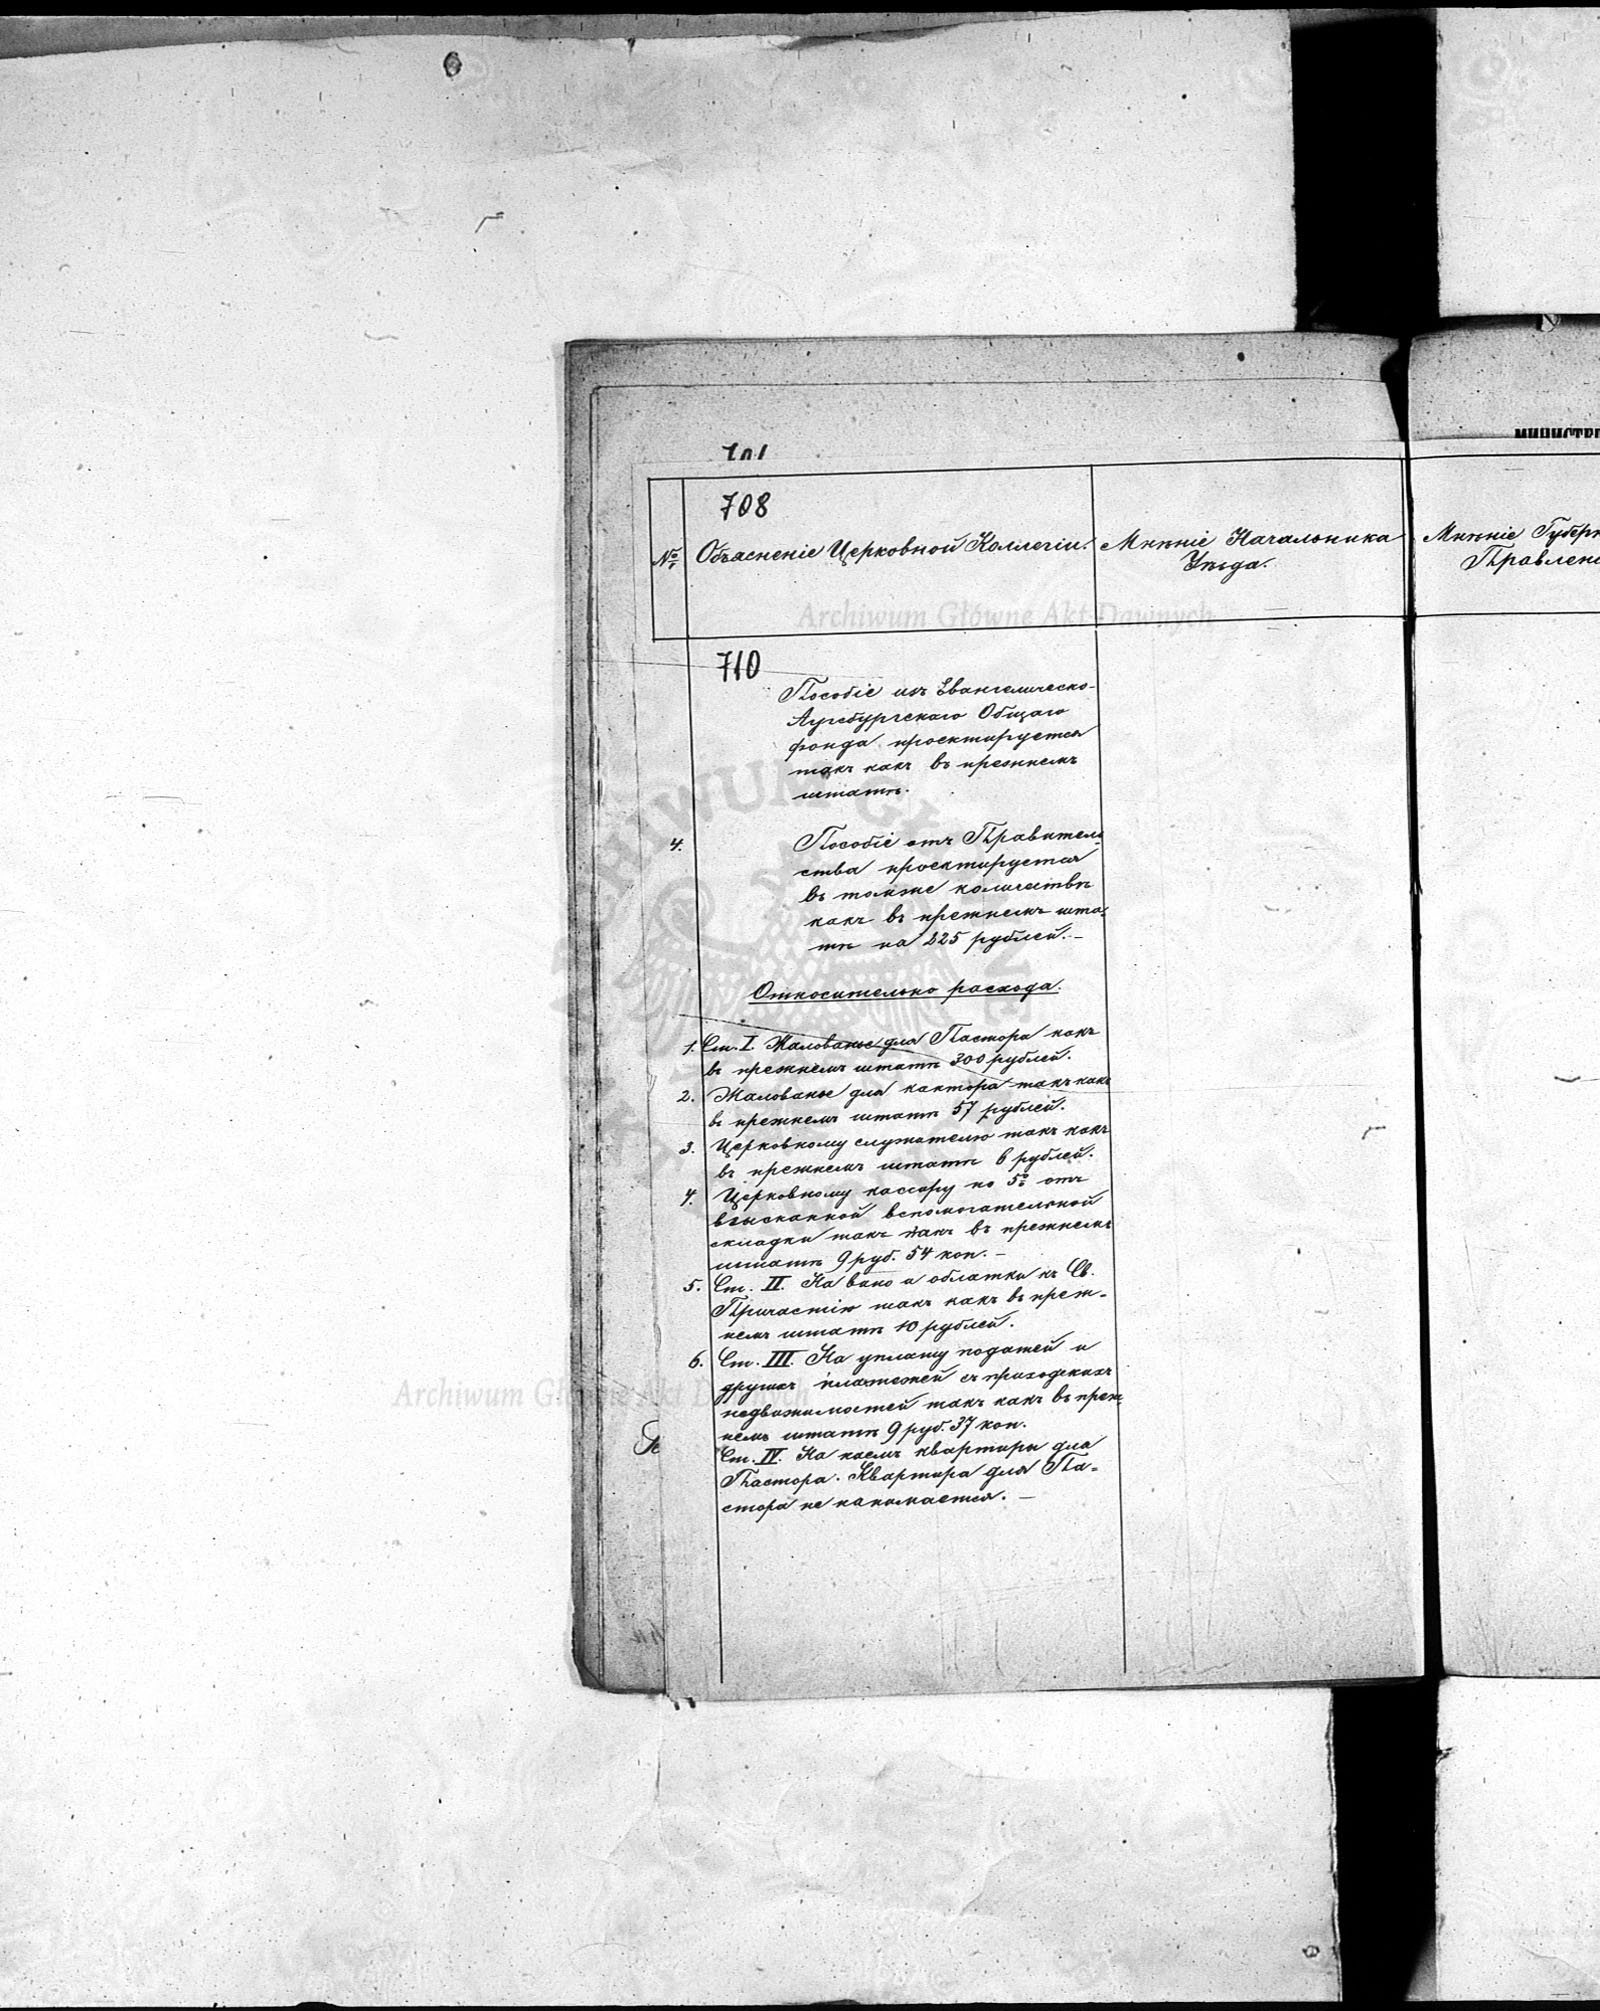 701
708
№
Объясненіе Церковной Коллегіи.
Мнѣніе Начальника
Уѣзда.
Мнѣніе Губерн
Правлені
МИНИСТЕР
Archiwum Główne Akt Dawnych
710
Пособіе изъ Евангелическо-
Аугсбургскаго Общаго
фонда проектируется
такъ какъ въ прежнемъ
штатѣ.
4. Пособіе отъ Правитель-
ства проектируется
въ томже количествѣ
какъ въ прежнемъ шта-
тѣ на 225 рублей.-
Относительно расхода.
1. Ст. I. Жалованье для Пастора какъ
въ прежнемъ штатѣ 300 рублей.
2. Жалованье для кантора такъ какъ
въ прежнемъ штатѣ 57 рублей.
3. Церковному служителю такъ какъ
въ прежнемъ штатѣ 6 рублей.
4. Церковному кассиру по 5% отъ
взысканной вспомогательной
складки такъ какъ въ прежнемъ
штатѣ 9 руб. 54 коп. –
5. Ст. II. На вино и облатки къ Св.
Причастію такъ какъ въ преж-
немъ штатѣ 10 рублей.
6. Ст. III. На уплату податей и
другихъ платежей съ приходскихъ
недвижимостей такъ какъ въ преж-
немъ штатѣ 9 руб. 37 коп.
Ст. IV. На наемъ квартиры для
Пастора. Квартира для Па-
стора не нанимается. –
Archiwum Główne Akt Dawnych